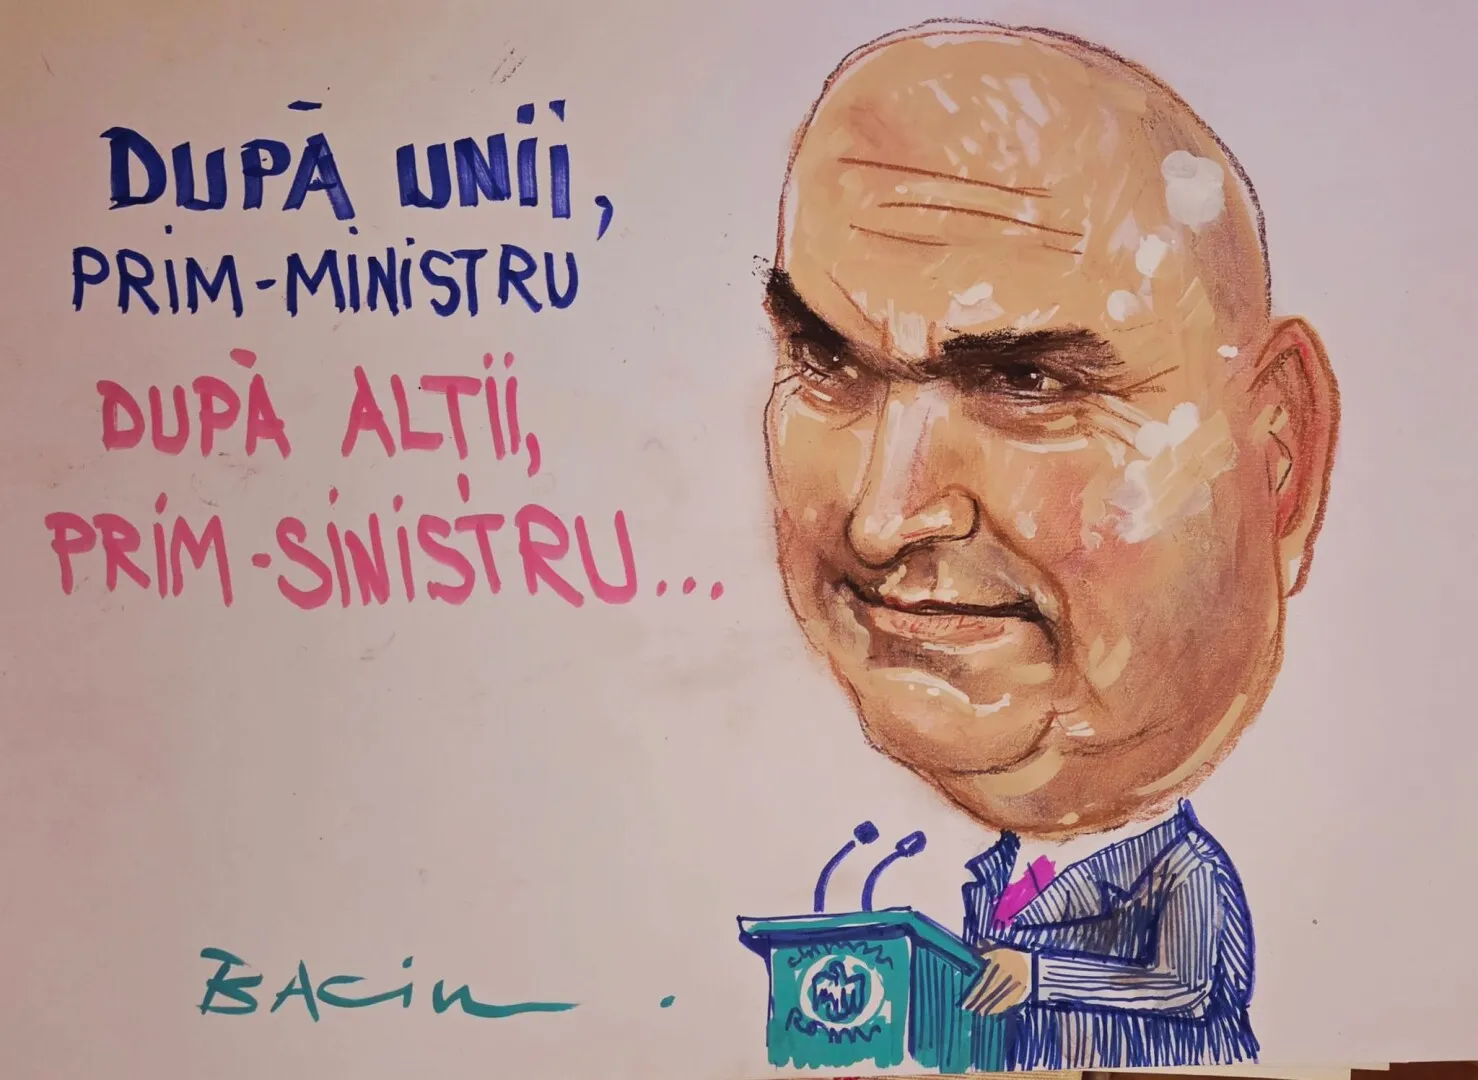 DUPĂ UNII,
PRIM-MINISTRU
DUPĂ ALȚII,
PRIM-SINISTRU...
BACIU